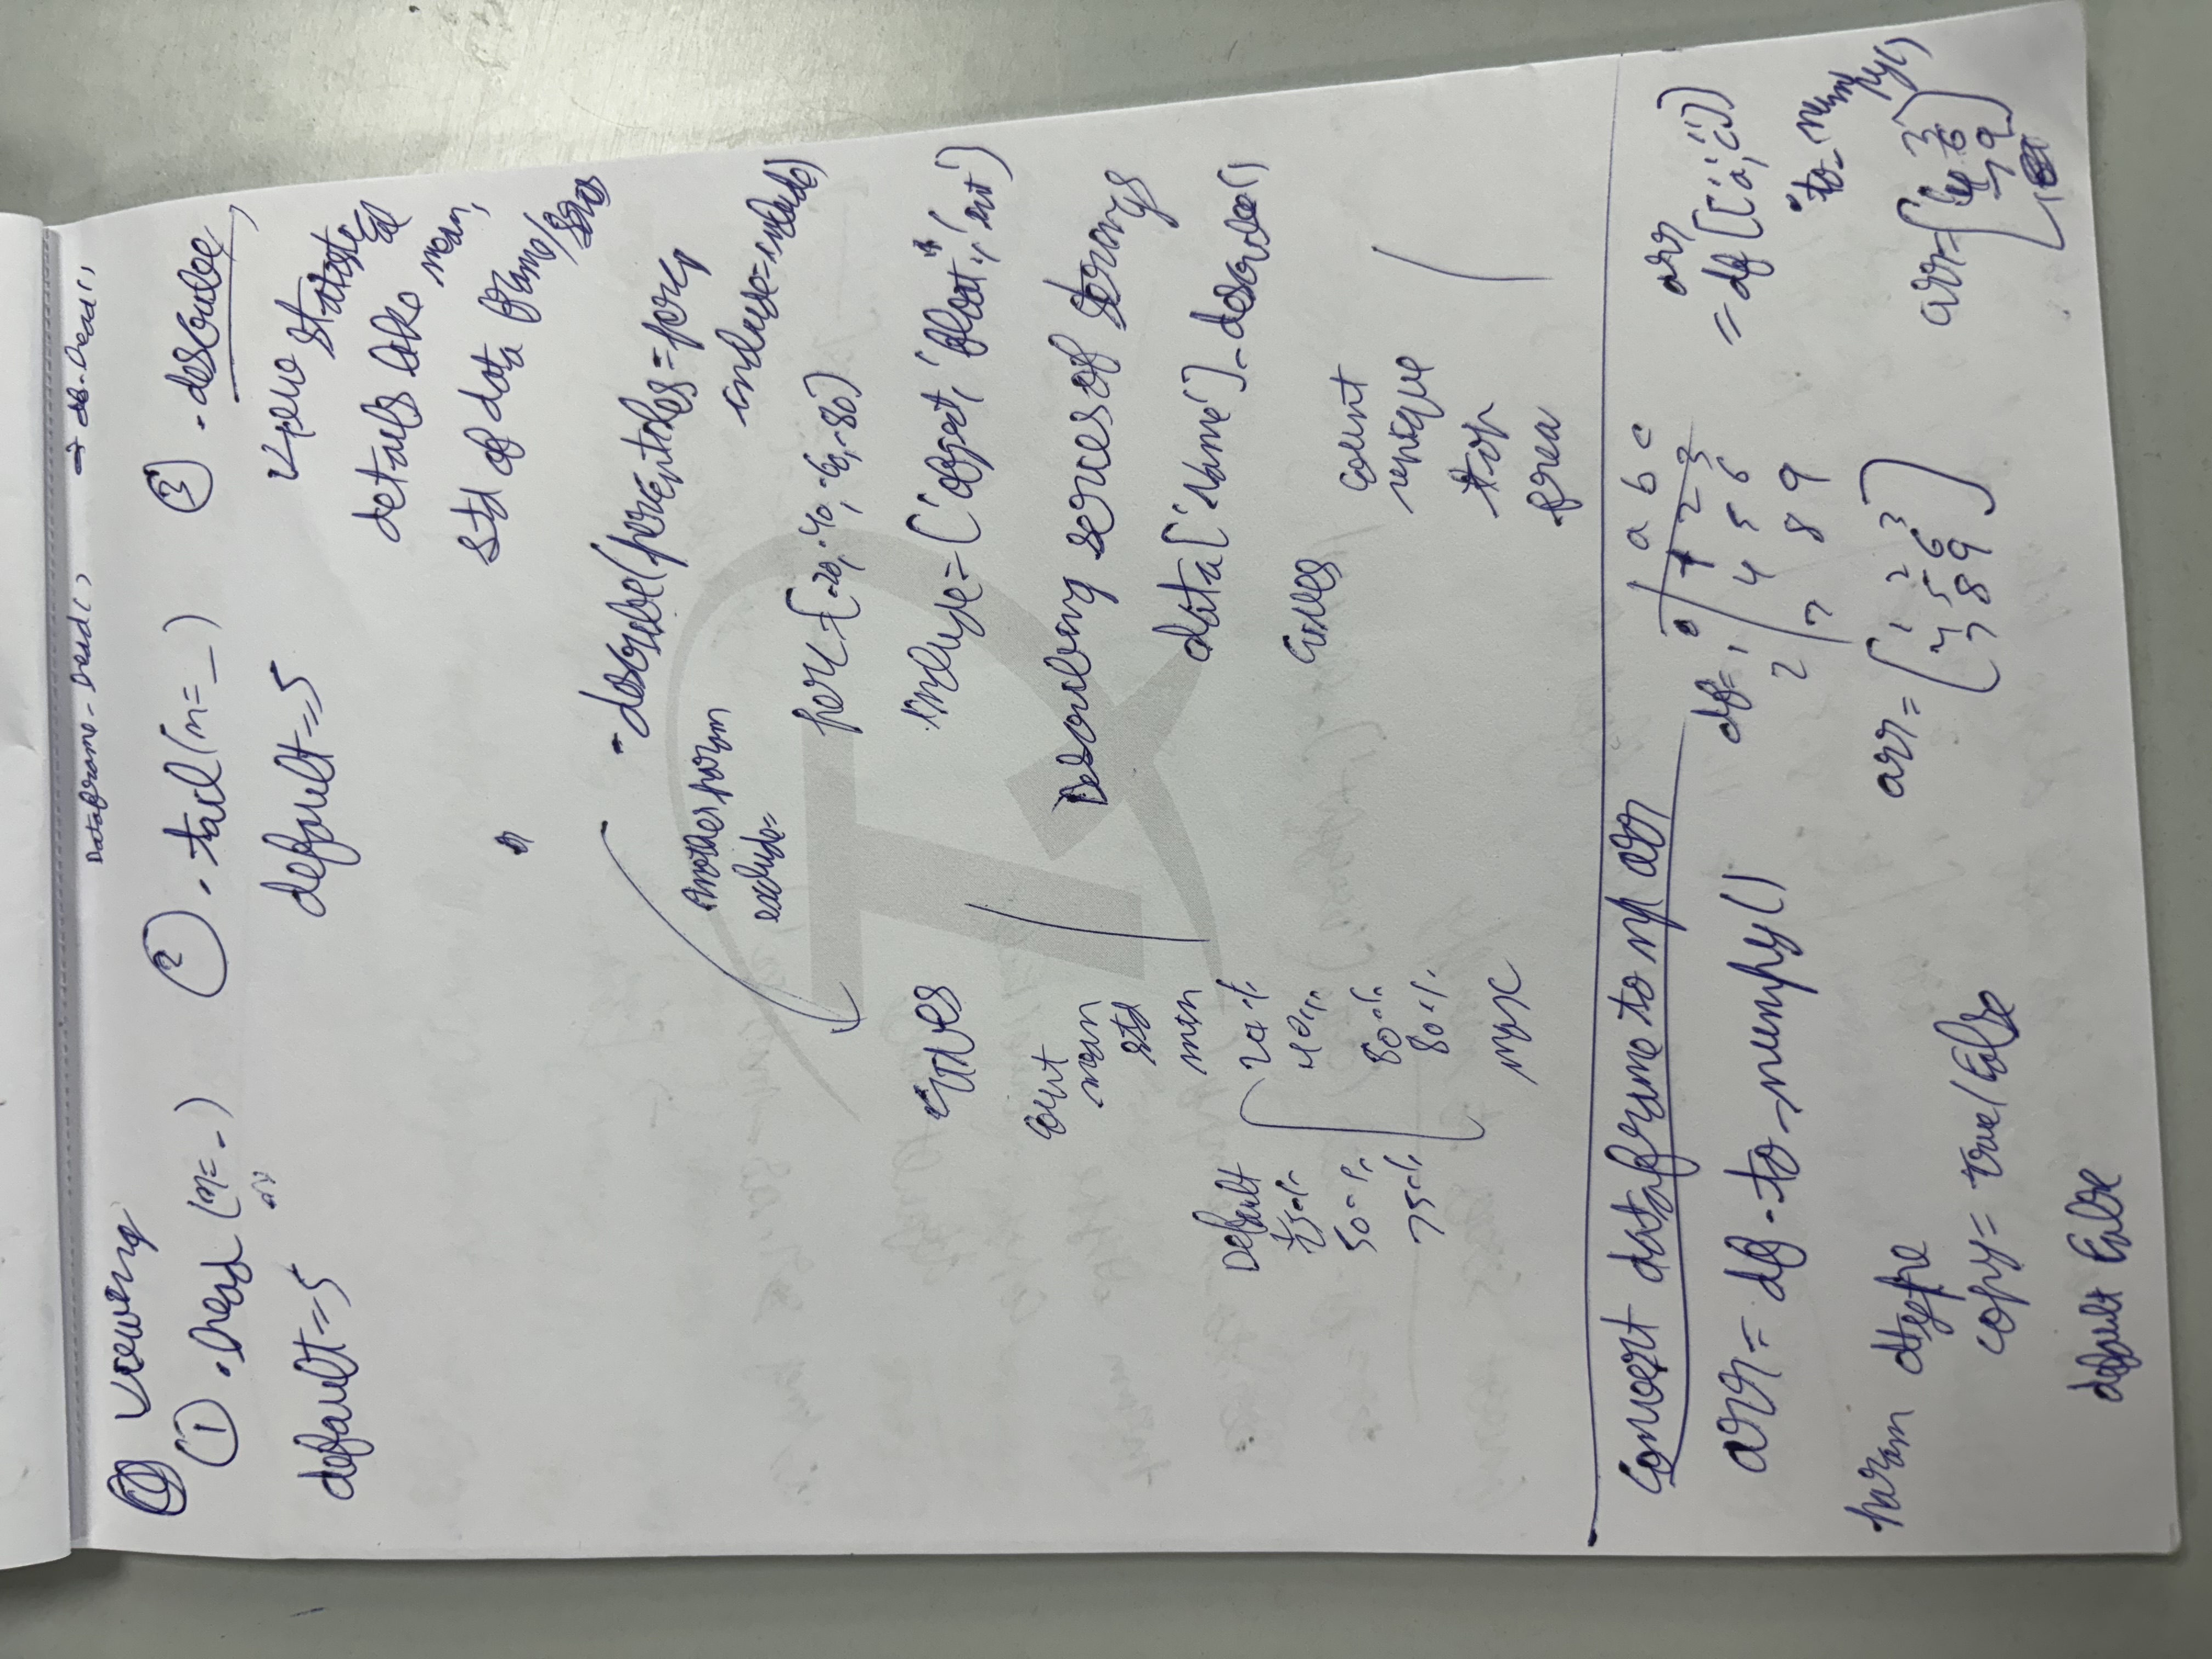 Dataframe.head() → df.head()
Viewing
① .head (n= _)
default=5
② .tail(n= _)
default=5
③ .describe
View statistical
details like mean,
std of data frame/series
.describe(percentiles=perc,
include=include)
Another param
exclude=
perc=[.20, .40, .60, .80]
include=['object, 'float', 'int']
Gives
Count
mean
std
min
20%
40%
80%
80%
max
Default
25%
50%
75%
Describing series of strings
data['Name'].describe()
Gives
count
unique
top
freq
Convert dataframe to np arr
arr= df.to_numpy()
param dtype
copy= true/False
default False
a b c
df= 0 1 2 3
1 4 5 6
2 7 8 9
arr= [1 2 3
4 5 6
7 8 9]
arr
= df[['a','c']]
.to_numpy()
arr=[1 3
4 6
7 9]